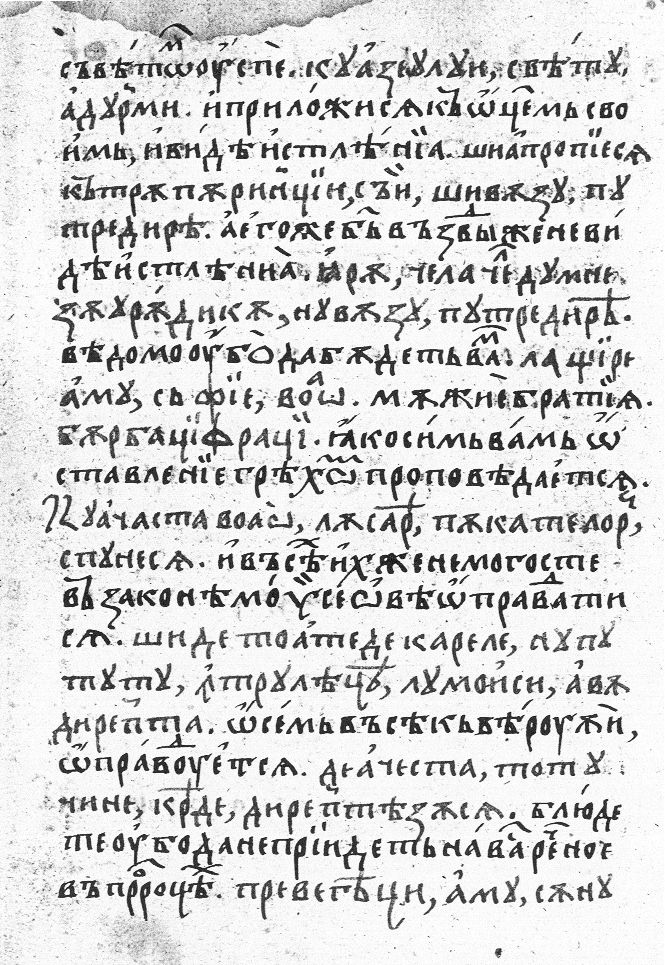 съвѣтѡⷨ оу҆спѐ. і҆ с куа҆зеулуи, свѣ́ту,
а҆дурми. и҆ прило́жисѧ къ ѿц҃емь сво
и҆мь, и҆ ви́дѣ и҆стлѣ́нїа. ши а҆пропїесѧ
къ трѫ пѫринцїи, съ́й, ши вѫзу, пу
тредирѣ. а҆ е҆гоже бг҃ъ въздвы́же не ви́
дѣ и҆стлѣниа̀. і҆арѫ, чела че дⷣумне
зѫу рѫдикѫ, ну вѫзу, путредирѣ.
вѣдомо оу҆́бо да бѫдеть ваⷨ. ла щїре
а҆му, съ фїе, воаѡ. мѫжи́е братїѧ.
бѫрбацї фрацї. ꙗ҆ко си́мь ва́мь ѿ
ставленїе грѣхѡⷨ проповѣдае҆тсѧ.
Куа҆часта воаѡ̀, лѫсарѣ, пѫкателорⷤ,
спунесѧ. и҆ въ всѣⷯ и҆хже не могосте
въ законѣ мо́ѵсеѡвѣ ѡ҆правⷣати
сѧ. ши де тоа҆те де кареле, ну пу
туту, л҆трулѣцѣ, лу мои҆си, а҆вѫ
дирепта. ѡ҆ се́мь въсѣкь вѣ́роуѫй,
ѡ҆пра́вⷣоуе҆тсѧ. де а҆честа, тоту
чине, креде, дирептѣзѫсѧ. блю́де
те оу҆́бо да не прїидеть на́ ва рече́нное
въ прⷪ҇роцѣⷯ. превегѣци, а҆му, сѫ ну